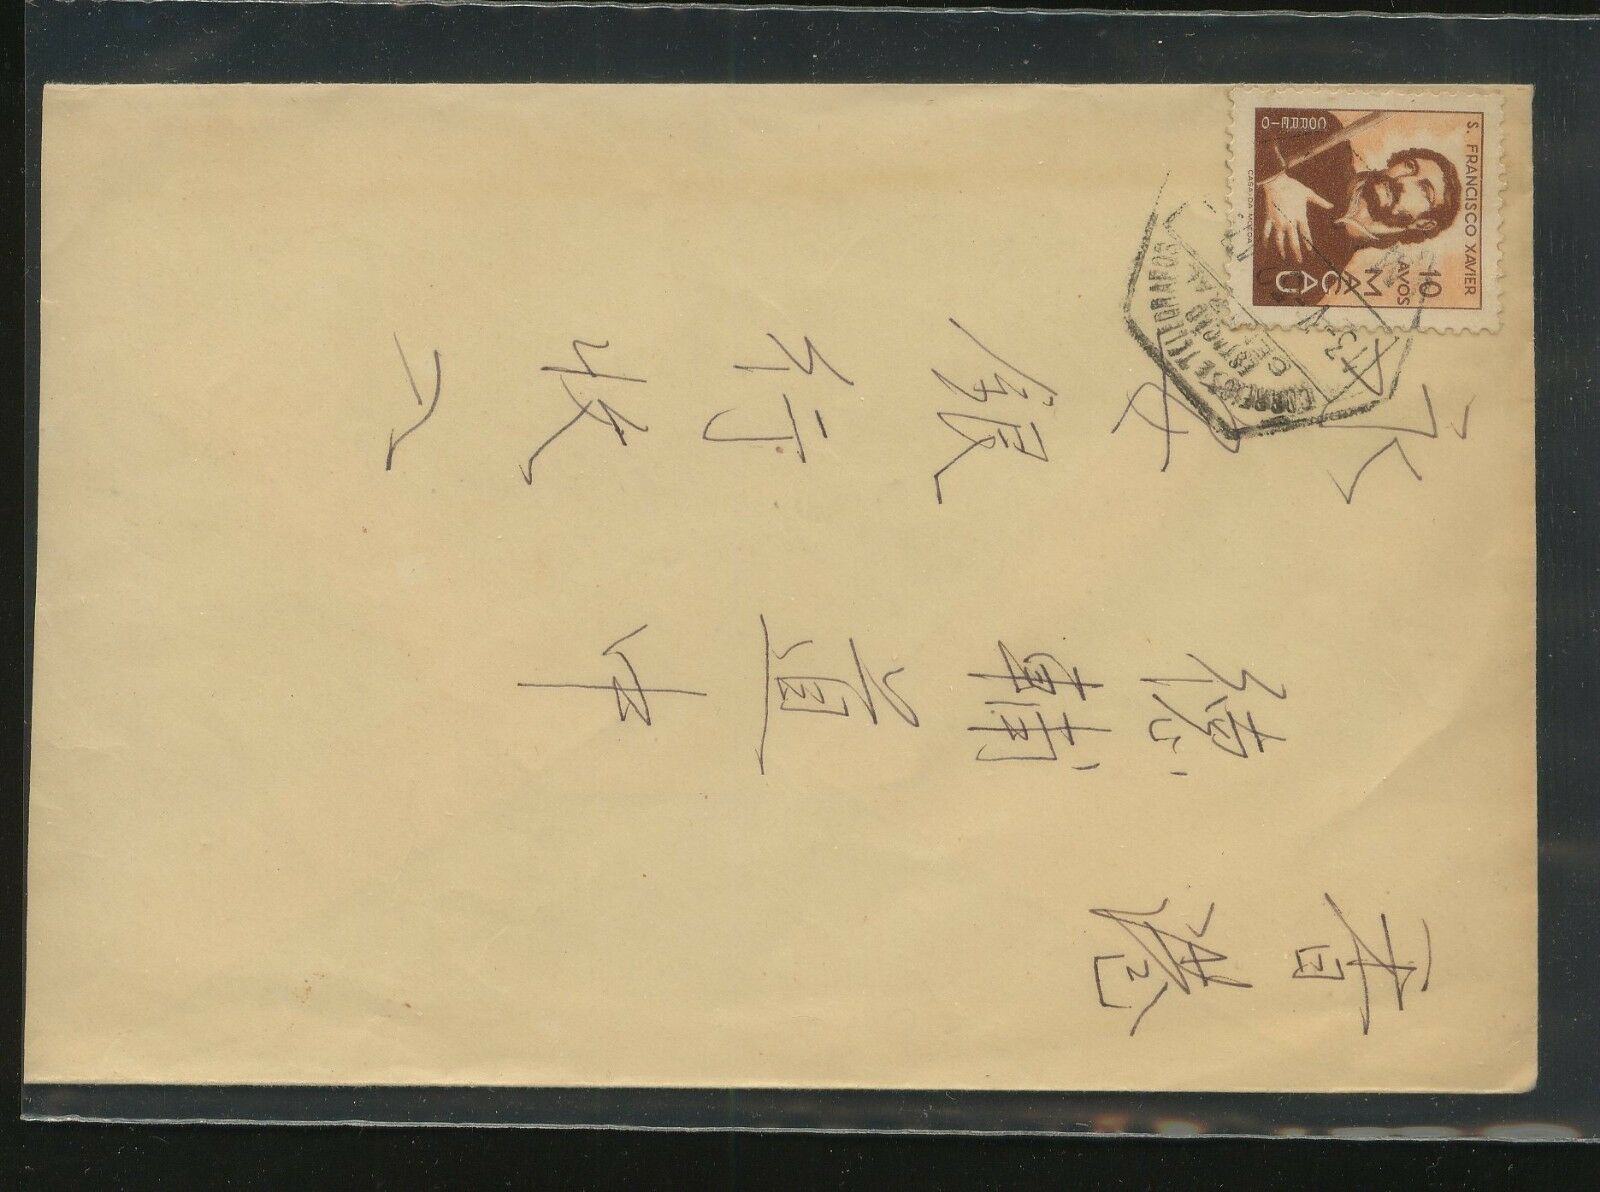 香港
德輔道中
永安銀行收入
S. FRANCISCO XAVIER
10
AVOS
MACAU
CORREIO
CASA DA MOEDA
CORREIOS E TELEGRAFOS
CENTRAL